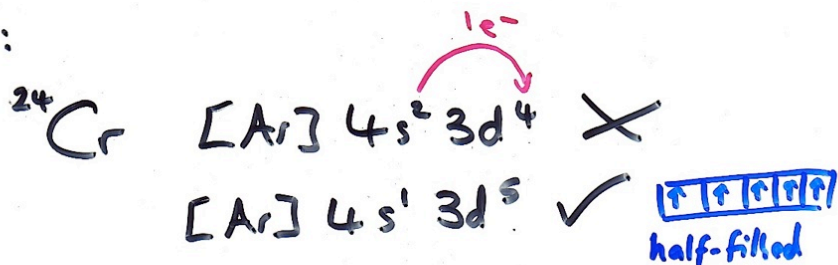 :
1e⁻
²⁴Cr [Ar] 4s² 3d⁴ ✗
[Ar] 4s¹ 3d⁵ ✓ ↑ ↑ ↑ ↑ ↑
half-filled